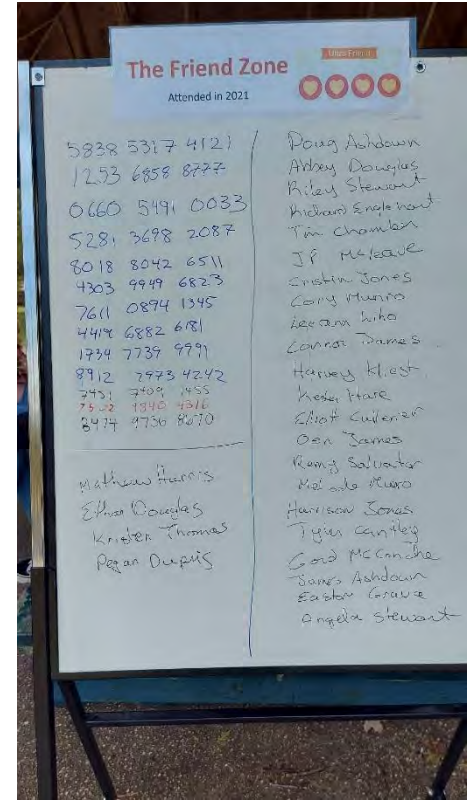 The Friend Zone
Attended in 2021
5838 5317 4121
1253 6858 8777
0660 5491 0033
5281 3698 2087
8018 8042 6511
4303 9949 6823
7611 0894 1345
4419 6882 6181
1734 7739 9991
8912 2973 4242
7431 7409 1455
4840 4316
8474 9736 8070
Matthew Harris
Ethan Douglas
Kristen Thomas
Regan Dupuis
Doug Ashdown
Abbey Douglas
Riley Stewart
Richard Englehart
Tim Chamblin
JP McLeave
Cristin Jones
Cory Munro
Leeann
Connor James
Harvey
Hare
Elliot
Oen James
Remy Salvator
Munro
Harrison Jones
Tyler Cantley
Gord McConche
James Ashdown
Easton Grave
Angela Stewart